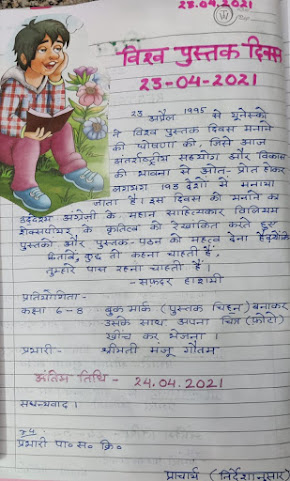 23.04.2021
विश्व पुस्तक दिवस
23-04-2021
23 अप्रैल 1995 से यूनेस्को
ने विश्व पुस्तक दिवस मनाने
की घोषणा की, जिसे आज
अंतर्राष्ट्रीय सहयोग और विकास
की भावना से ओत-प्रोत होकर
लगभग 193 देशों में मनाया
जाता है। इस दिवस को मनाने का
उद्देश्य अंग्रेजी के महान साहित्यकार विलियम
शेक्सपीयर के कृतित्व को रेखांकित करते हुए
पुस्तकों और पुस्तक-पठन को महत्व देना है
किताबें, कुछ तो कहना चाहती हैं,
तुम्हारे पास रहना चाहती हैं।
-सफ़दर हाशमी
प्रतियोगिता-
कक्षा 6-8 बुक मार्क (पुस्तक चिह्न) बनाकर
उसके साथ अपना चित्र (फ़ोटो)
खींच कर भेजना।
प्रभारी- श्रीमती मंजू गौतम
अंतिम तिथि - 24.04.2021
सधन्यवाद।
प्रभारी पा० स० क्रि०
प्राचार्य (निर्देशानुसार)